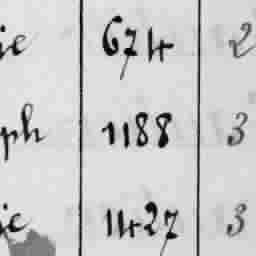 ie 674 2
ph 1188 3
ie 1427 3